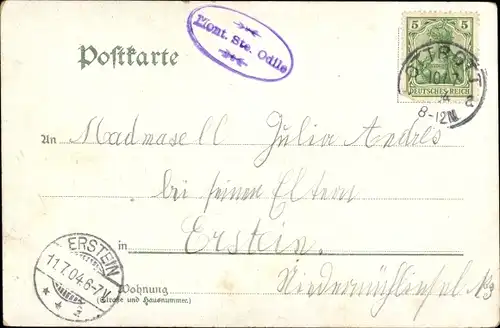 Postkarte
Mont. Ste. Odile
5 5
DEUTSCHES REICH
OTTROTT
10/7
04
8-12N.
a
An Madmasell Julia Andres
bei seinen Eltern
in Erstein.
Niedermühlinsel No 3
Wohnung
(Straße und Hausnummer.)
ERSTEIN
11.7.04.6-7V.
* a *